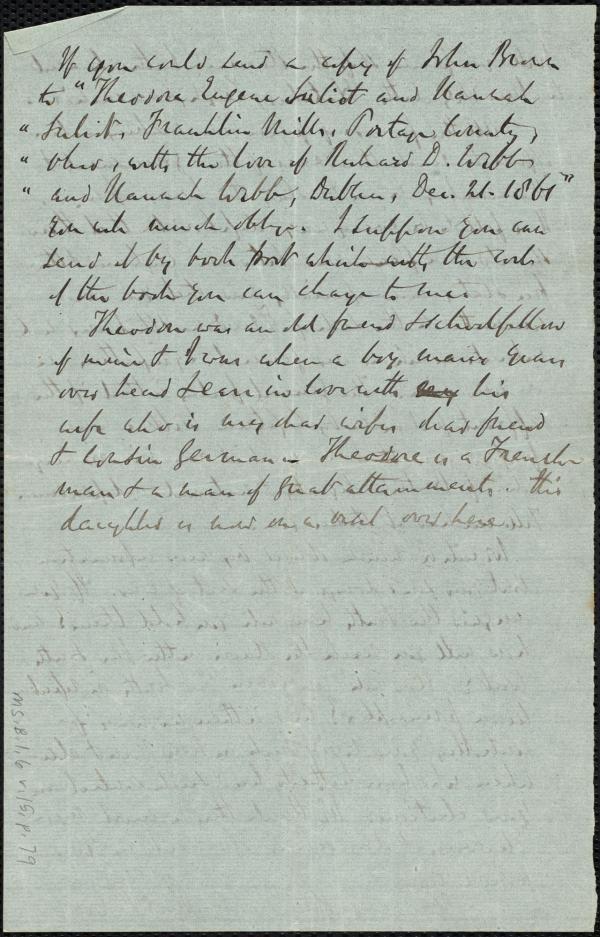 If you could send a copy of John Brown
to "Theodore Eugene Suliot and Hannah
" Suliot, Franklin Mills, Portage County,
" Ohio, with the love of Richard D. Webb
" and Hannah Webb, Dublin, Dec. 21. 1861"
You will much oblige. I suppose you can
send it by book post which with the cost
of the book you can charge to me.
Theodore was an old friend & schoolfellow
of mine & I was when a boy many years
over head & ears in love with my his
wife who is my dear wife's dear friend
& cousin German. Theodore is a French
man & a man of great attainments. His
daughter is now on a visit over here.
Ms.B.1.6 v.15, p.79